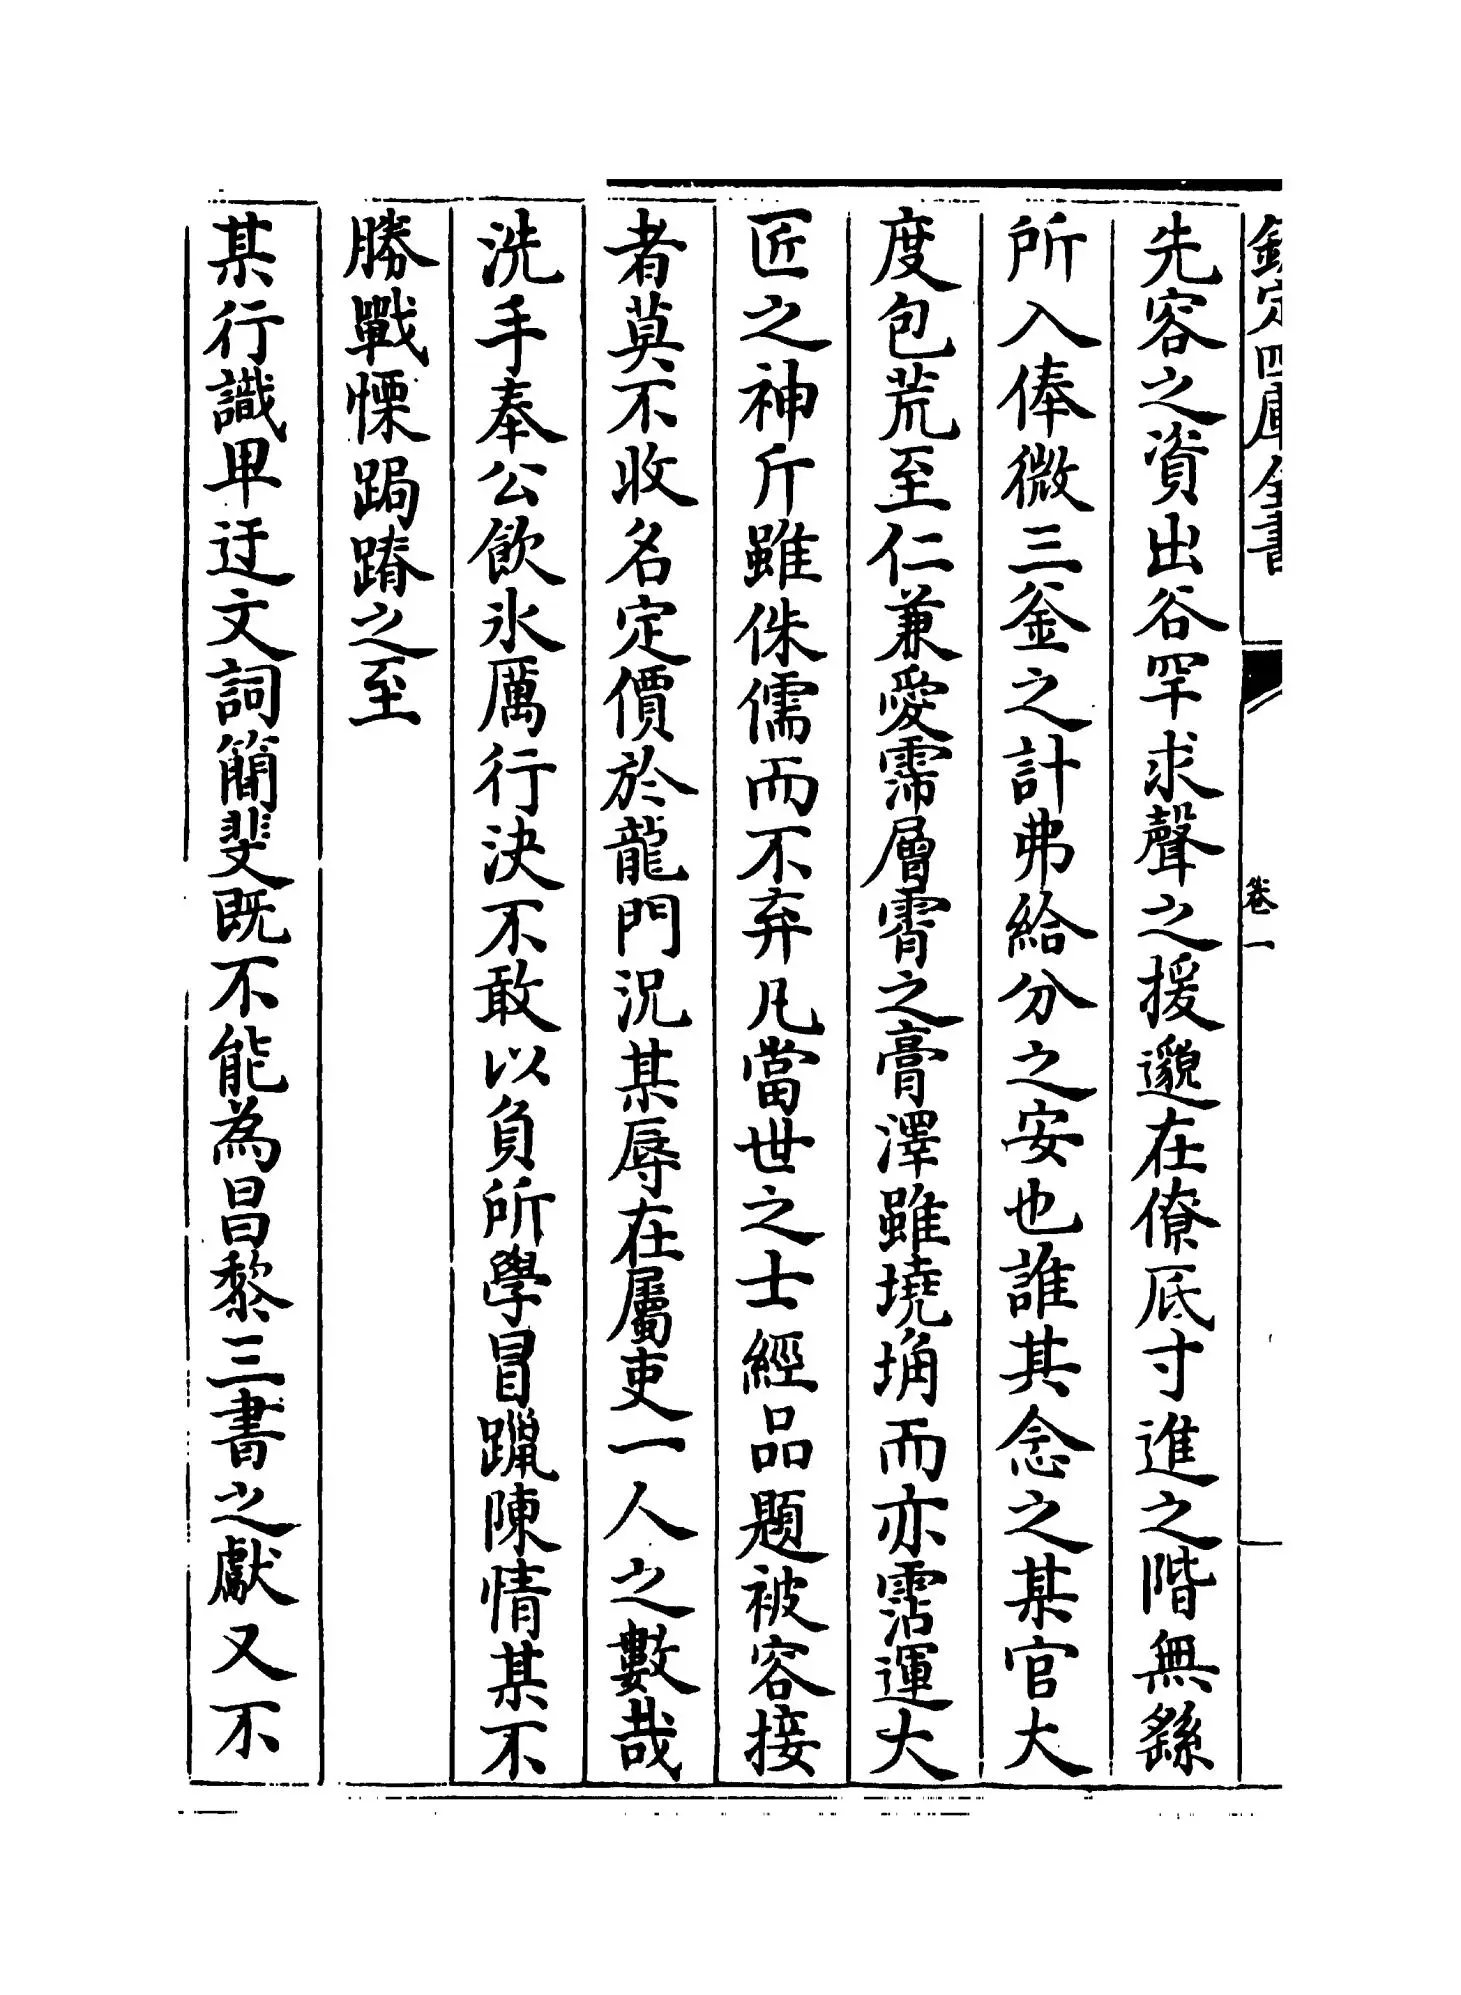 欽定四庫全書
卷一
先容之資出谷罕求聲之援邈在僚底寸進之階無繇
所入俸微三釜之計弗給分之安也誰其念之某官大
度包荒至仁兼愛霈層霄之膏澤雖墝埆而亦霑運大
匠之神斤雖侏儒而不弃凡當世之士經品題被容接
者莫不收名定價於龍門況某辱在屬吏一人之數哉
洗手奉公飲氷厲行決不敢以負所學冒躐陳情某不
勝戰慄跼蹐之至
某行識卑迂文詞簡斐既不能為昌黎三書之獻又不